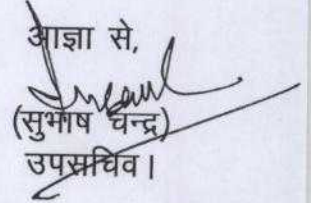 आज्ञा से,
(सुभाष चन्द्र)
उपसचिव।